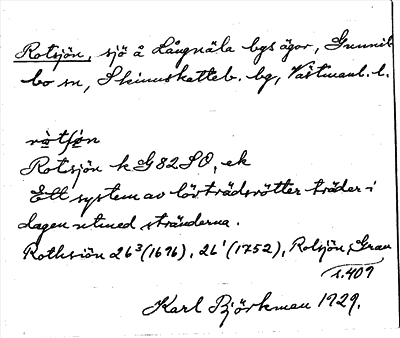 Rotsjön, sjö å Långnäla bys ägor, Gunnil-
bo sn, Skinnskatteb. bg, Västmanl. l.
ròtʃøn
Rotsjön k G82SO, ek
Ett system av lövträdsrötter träder i
dagen utmed stränderna.
Rothsiön 26³ (1696), 26¹ (1752), Rotsjön, Grau
s. 407
Karl Björkman 1929.